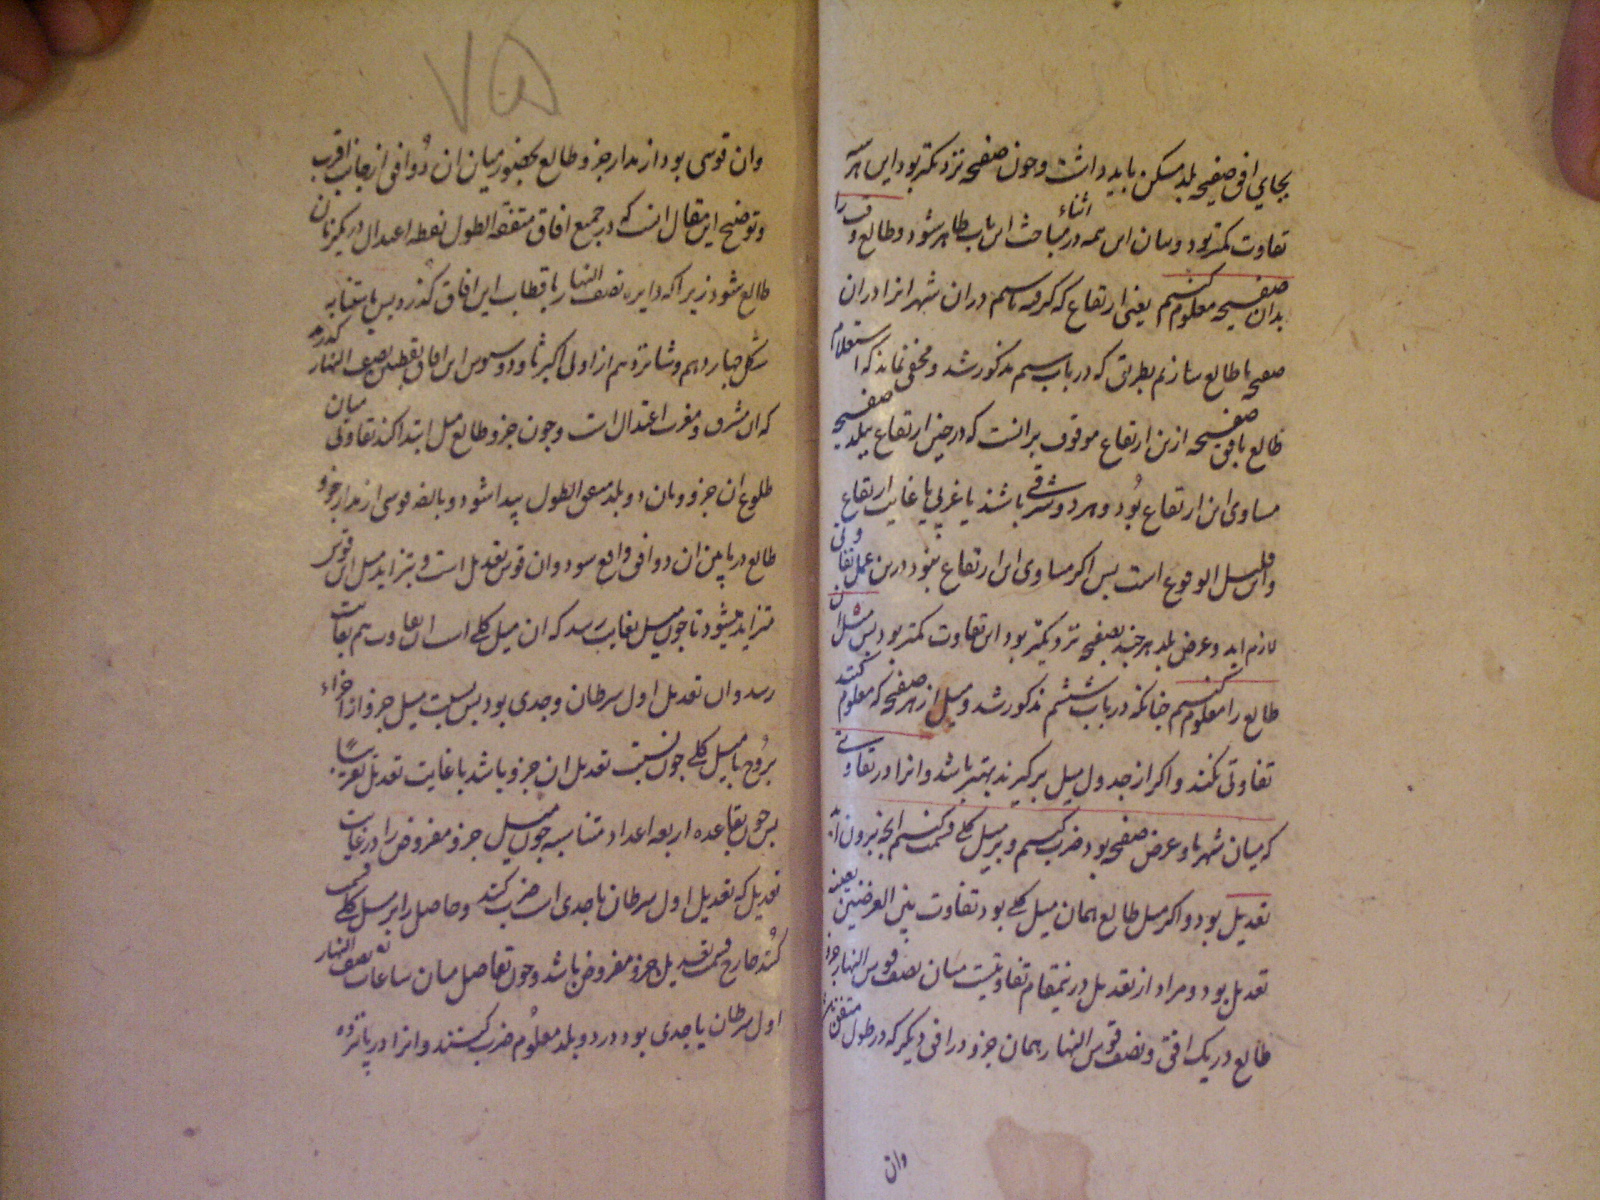 بجای افق صفیحه بلد مسکن باید داشت و چون صفحه نزدیکتر بود این هر سه
تفاوت کمتر بود و بیان این همه در اثناء مباحث این باب ظاهر شود و طالع وقت را
بدان صفیحه معلوم کنیم یعنی ارتفاع که گرفته باشیم در ان شهر انرا در ان
صفحه با طالع سازیم بطریقی که در باب سیم مذکور شد و مخفی نماند که استعلام
طالع باقی صفیحه ازین ارتفاع موقوف برانست که در حین ارتفاع ببلد صفیحه
مساوی این ارتفاع بود و هر دو شرقی باشند یا غربی یا غایت ارتفاع
و این قلیل الوقوع است پس اکر مساوی این ارتفاع نبود درین عمل تفاوتی
لازم اید و عرض بلد هر چند بصفیحه نزدیکتر بود این تفاوت کمتر بود پس میل ان
طالع را معلوم کنیم چنانکه در باب ششم مذکور شد و میل از هر صفیحه که معلوم کنند
تفاوتی نکند و اکر از جدول میل برکیرند بهتر باشد و انرا در تفاوتی
که میان شهر ما و عرض صفحه بود ضرب کنیم و بر میل کلی قسمت کنیم انچه بیرون اید
تعدیل بود و اکر میل طالع همان میل کلی بود تفاوت بین العرضین بعینه
تعدیل بود و مراد از تعدیل درینمقام تفاوتیست میان نصف قوس النهار جزو
طالع در یک افق و نصف قوس النهار همان جزو در افقی دیکر که در طول متفق باشند
وان
۷۵
وان قوسی بود از مدار جزو طالع محصور میان ان دو افق از جانب اقرب
و توضیح این مقال انست که در جمیع افاق متفقة الطول نقطه اعتدال در یکزمان
طالع شود زیرا که دایره نصف النهار باقطاب این افاق کذرد پس بمتشابه
شکل چهاردهم و شانزدهم از اولی اکر ثاودوسیوس این افاق بقطبین نصف النهار کذرند
که ان مشرق و مغرب اعتدال است و چون جزو طالع میل ابتدا کند تفاوتی میان
طلوع ان جزو میان دو بلد متفق الطول پیدا شود و بالضروره قوسی از مدار جزو
طالع در مابین ان دو افق واقع شود وان قوس تعدیل است و بتزاید میل این قوس
متزاید میشود تا چون میل بغایت رسد که ان میل کلی است ان تفاوت هم بغایت
رسد و ان تعدیل اول سرطان و جدی بود پس نسبت میل جزو از اجزاء
بروج با میل کلی چون نسبت تعدیل ان جزو باشد با غایت تعدیل تقریبا
پس چون بقاعده اربعه اعداد متناسبه چون میل جزو مفروض را در غایت
تعدیل که تعدیل اول سرطان یا جدی است ضرب کنند و حاصل را بر میل کلی قسمت
کنند خارج قسمت تعدیل جزو مفروض باشد و چون تفاضل میان ساعات نصف النهار
اول سرطان یا جدی بود در دو بلد معلوم ضرب کنند و انرا در پانزده